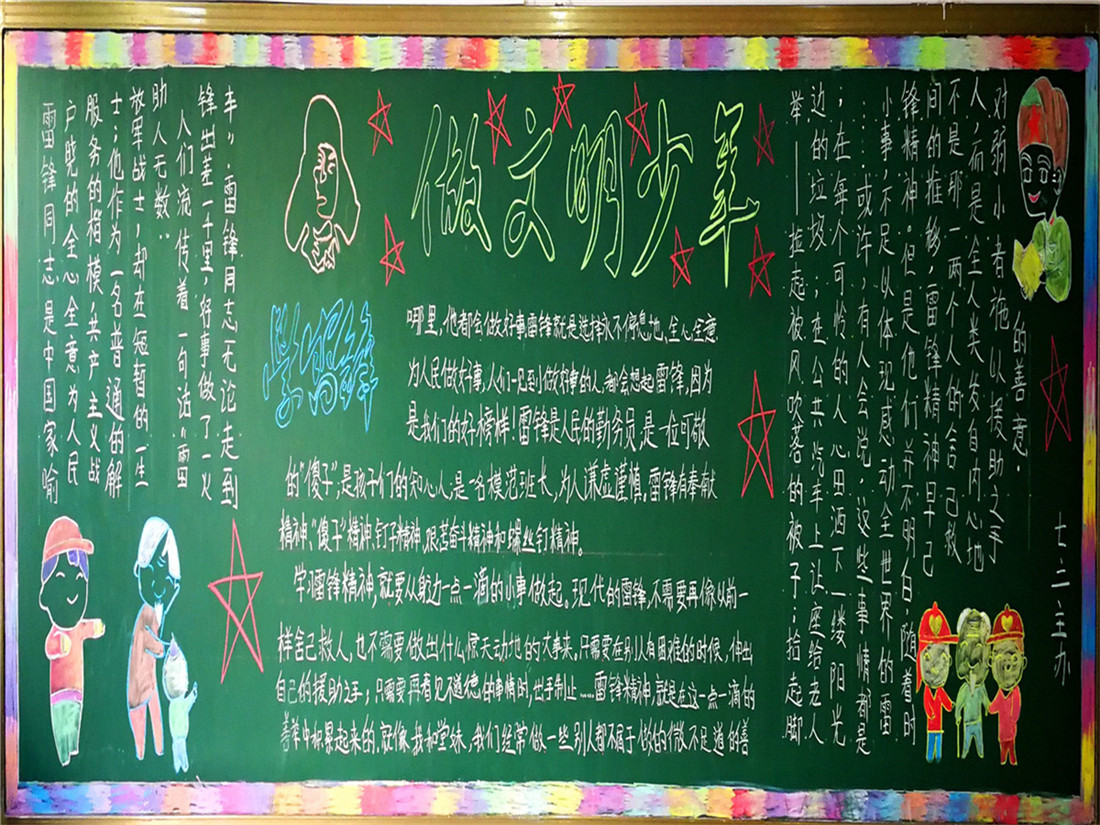 做文明少年
学雷锋
雷锋同志是中国家喻
户晓的全心全意为人民
服务的楷模，共产主义战
士；他作为一名普通的解
放军战士，却在短暂的一生
助人无数..
人们流传着一句话“雷
锋出差一千里，好事做了一火
车”.雷锋同志无论走到
哪里，他都会做好事雷锋就是选择永不停息地，全心全意
为人民做好事，人们一见到做好事的人，都会想起雷锋，因为
是我们的好榜样！雷锋是人民的勤务员，是一位可敬
的“傻子”，是孩子们的知心人，是一名模范班长，为人谦虚谨慎。雷锋有奉献
精神、“傻子”精神、钉子精神、艰苦奋斗精神和螺丝钉精神。
学习雷锋精神，就要从身边一点一滴的小事做起。现代的雷锋，不需要再像以前一
样舍己救人，也不需要做出什么惊天动地的大事来。只需要在别人有困难的时候，伸出
自己的援助之手，只需要再看见不道德的事情时，出手制止……雷锋精神，就是在这一点一滴的
善举中积累起来的，就像我和堂妹，我们经常做一些别人都不屑于做的微不足道的善
举——拉起被风吹落的被子；拾起脚
边的垃圾；在公共汽车上让座给老人
；在每个可怜的人心田洒下一缕阳光
……或许，有人会说，这些事情都是
小事，不足以体现感动全世界的雷
锋精神。但是他们并不明白.随着时
间的推移，雷锋精神早已
不是那一两个人的舍己救
人，而是全人类发自内心地
对弱小者施以援助之手
的善意.
七二主办